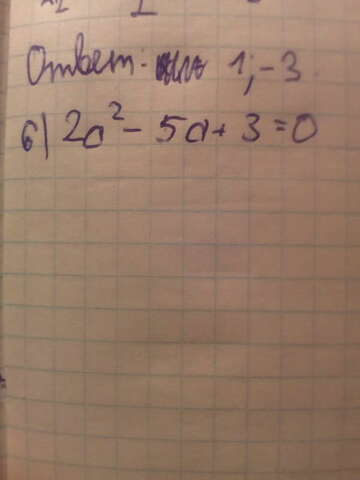 Ответ: 1; -3
б) 2a² - 5a + 3 = 0